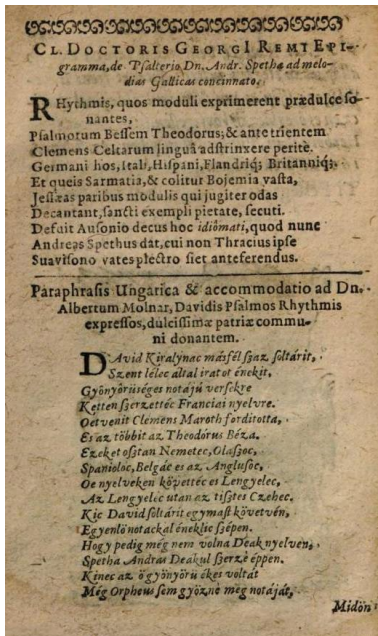 CL. DOCTORIS GEORGI REMI EPI-
gramma, de Psalterio, Dn. Andr. Spetha ad melo-
dias Gallicas concinnato.
RHythmis, quos moduli exprimerent prædulce so-
nantes,
Psalmorum Bessem Theodorus; & ante trientem
Clemens Celtarum linguâ adstrinxere peritè.
Germani hos, Itali, Hispani, Flandriq; Britanniq;
Et queis Sarmatia, & colitur Bojemia vasta,
Jessæas paribus modulis qui jugiter odas
Decantant, sancti exempli pietate, secuti.
Defuit Ausonio decus hoc idiômati, quod nunc
Andreas Spethus dat, cui non Thracius ipse
Suavisono vates plectro siet anteferendus.
Paraphrasis Ungarica & accommodatio ad Dn.
Albertum Molnar, Davidis Psalmos Rhythmis
expressos, dulcissimæ patriæ commu-
ni donantem.
DAvid Kiralynac másfél szaz soltárit,
Szent lélec által iratot énekit,
Gyönyörüséges notájú versekre
Ketten szerzettéc Franciai nyelvre.
Oetvenit Clemens Maroth forditotta,
Es az többit az Theodórus Béza.
Ezeket osztan Nemetec, Olaszoc,
Spanioloc, Belgác es az Anglusoc,
Oe nyelveken követtéc es Lengyelec,
Az Lengyelec utan az tisztes Czehec.
Kic David soltárit egymast követvén,
Egyenlö notackal éneklic szépen.
Hogy pedig még nem volna Deak nyelven,
Spetha Andras Deakul szerzé éppen.
Kinec az ö gyönyörü ékes voltát
Még Orpheus sem gyözne meg notáját,
Midön